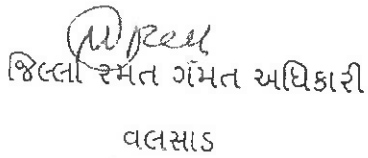 જિલ્લા રમત ગંમત અધિકારી
વલસાડ